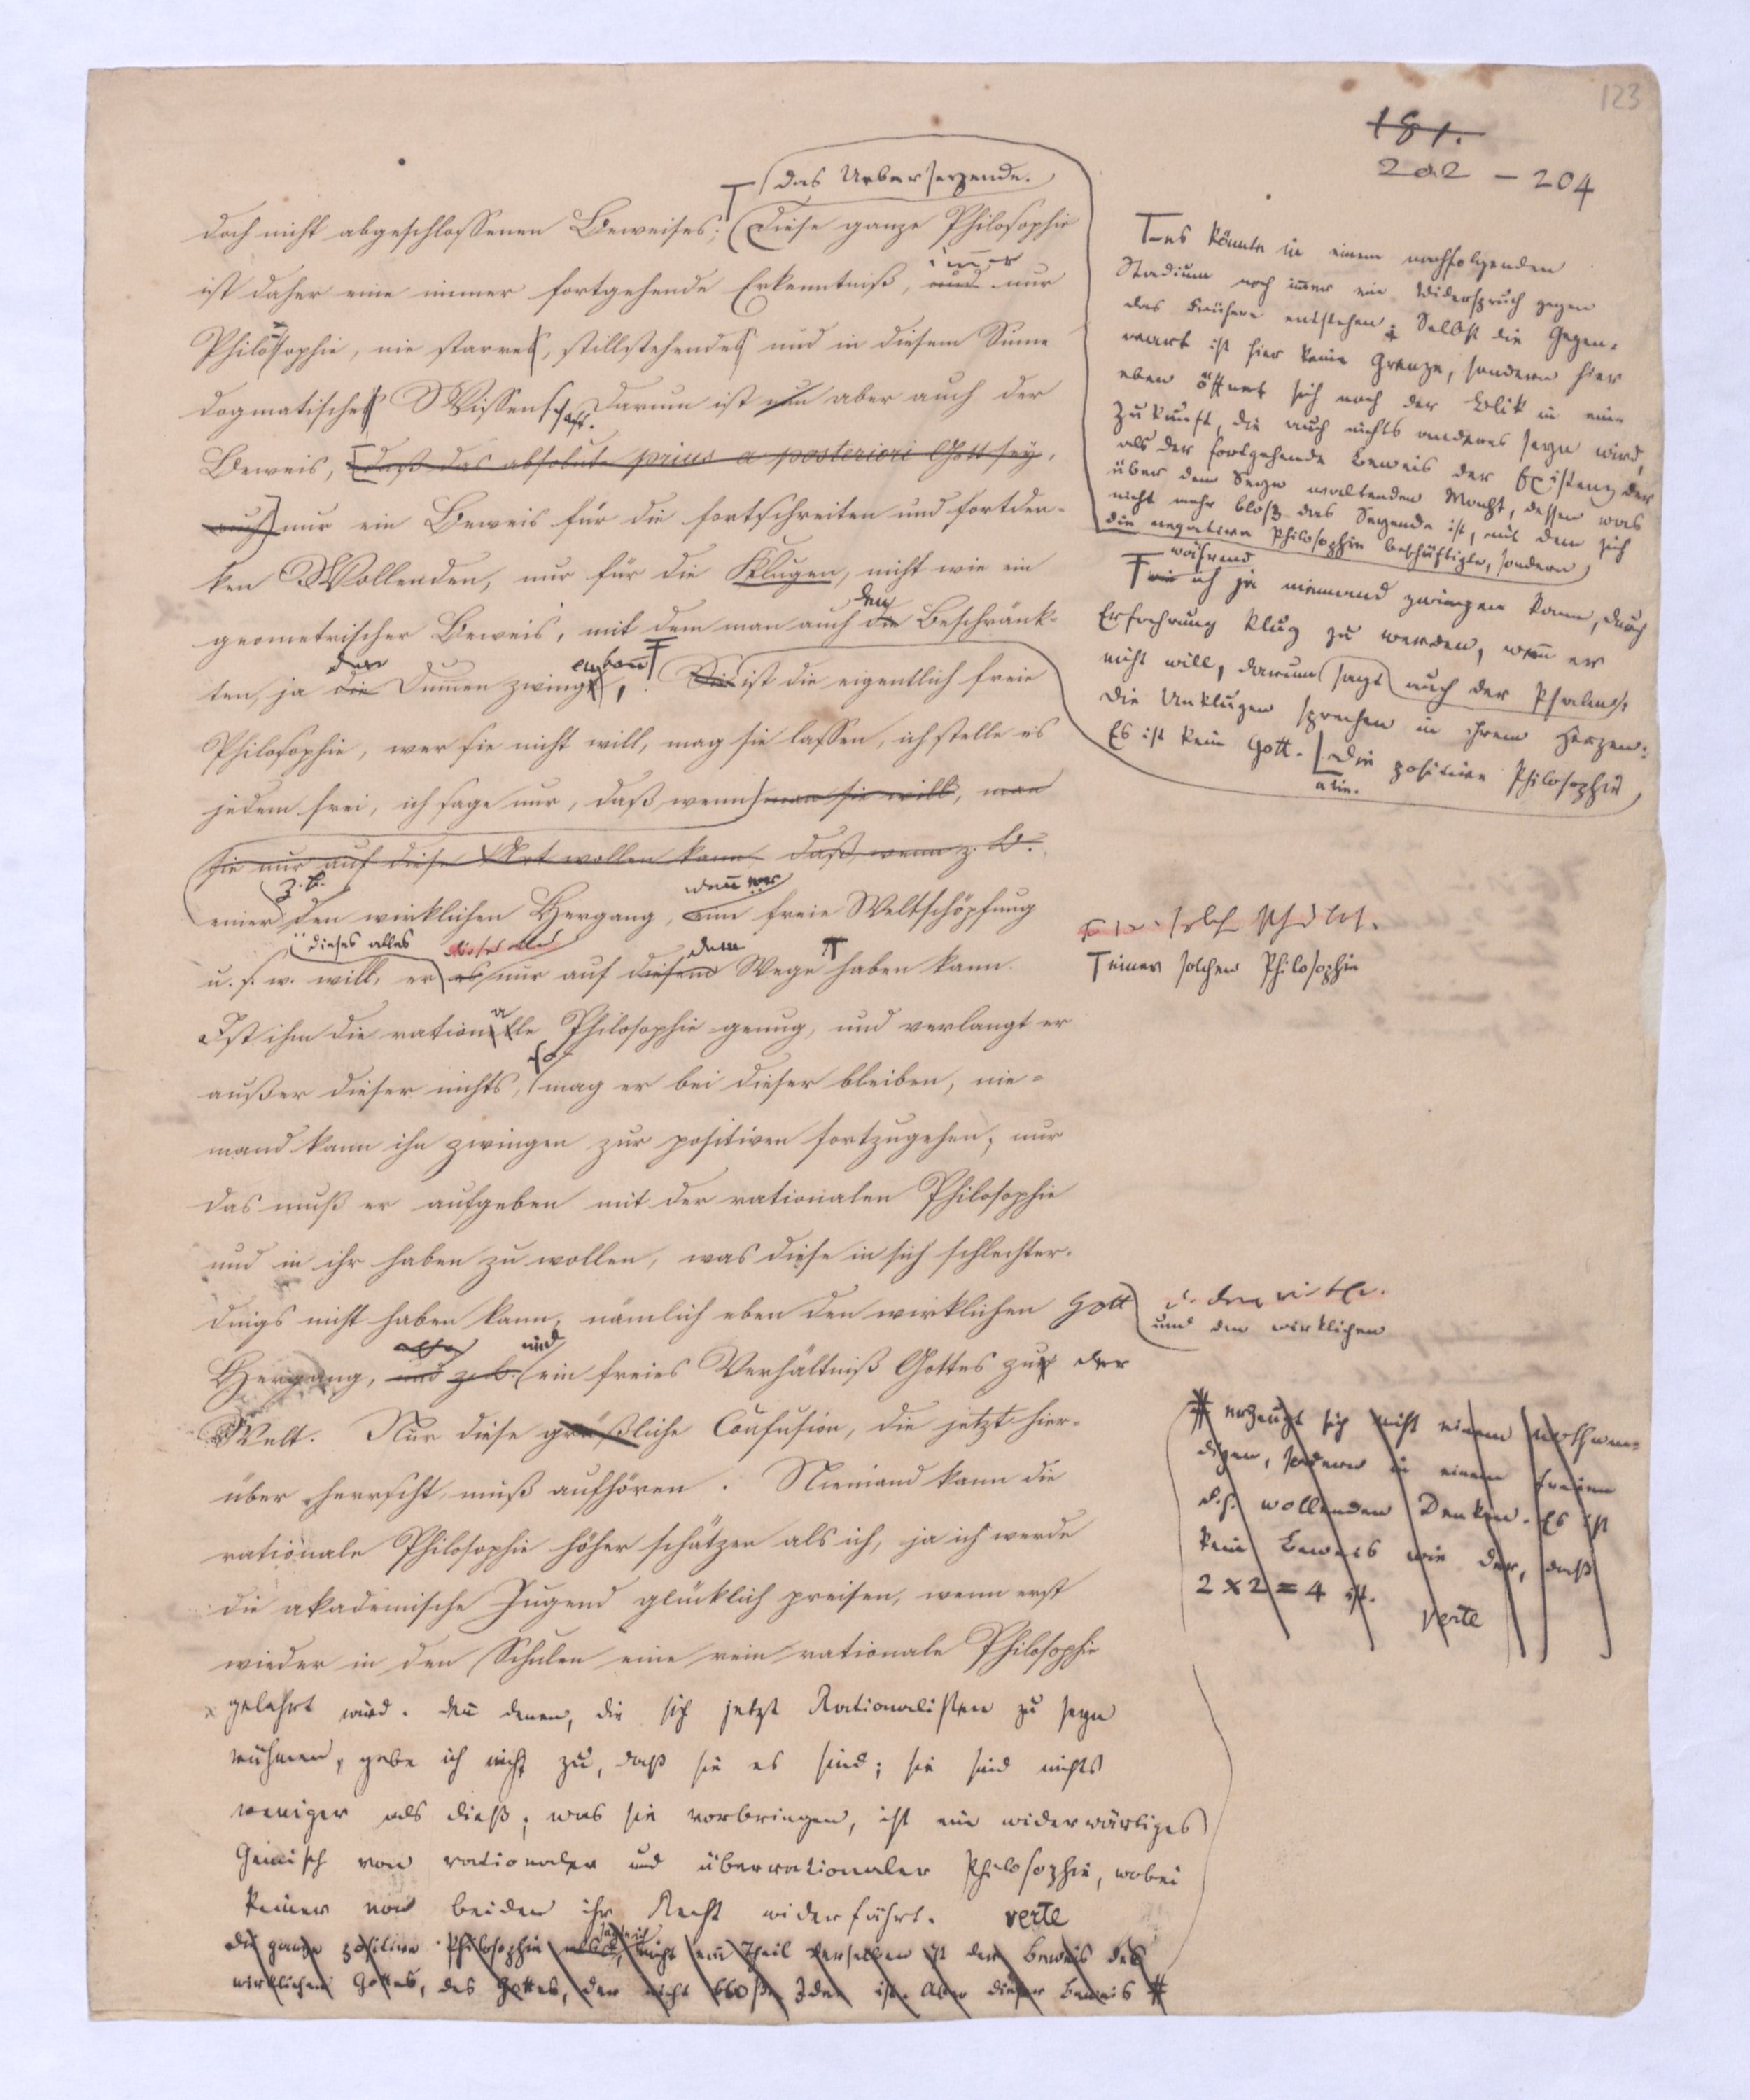 123
181.
202 – 204
das Ueberseyende.
doch nicht abgeschlossenen Beweises; (Diese ganze Philosophie
immer
ist daher eine immer fortgehende Erkenntniß, und nur
Philosophie, nie starres, stillstehendes und in diesem Sinne
dogmatisches Wissenschaft. Darum ist nun aber auch der
Beweis, [daß das absolute prius a posteriori Gott sey,
auch] nur ein Beweis für die fortschreiten und fortden-
ken Wollenden, nur für die Klugen, nicht wie ein
den
geometrischer Beweis, mit dem man auch die Beschränk-
den
ten, ja die Dummen zwingt, Sie ist die eigentlich freie
Philosophie, wer sie nicht will, mag sie lassen, ich stelle es
jedem frei, ich sage nur, daß, wenn man sie will, man
sie nur auf diese Art wollen kann, daß, wenn z. B.
z. B.
einer den wirklichen Hergang, wenn er ein freie Weltschöpfung
dieses alles dieses alles dem
u. s. w. will, er es nur auf diesem Wege haben kann.
Ist ihm die rationale Philosophie genug, und verlangt er
so
außer dieser nichts, mag er bei dieser bleiben, nie-
mand kann ihn zwingen zur positiven fortzugehen, nur
das muß er aufgeben mit der rationalen Philosophie
und in ihr haben zu wollen, was diese in sich schlechter-
dings nicht haben kann, nämlich eben den wirklichen Gott
und
Hergang, und z. B. ein freies Verhältniß Gottes zur der
Welt. Nur diese gräßliche Confusion, die jetzt hier-
über herrscht, muß aufhören. Niemand kann die
rationale Philosophie höher schätzen als ich, ja ich werde
die akademische Jugend glücklich preisen, wenn erst
wieder in den Schulen eine rein rationale Philosophie
gelehrt wird. Denn denen, die sich jetzt Rationalisten zu seyn
rühmen, gebe ich nicht zu, daß sie es sind; sie sind nichts
weniger als dieß; was sie vorbringen, ist ein widerwärtiges
Gemisch von rationaler und überrationaler Philosophie, wobei
keiner von beiden ihr Recht widerfährt. verte
die ganze positive Philosophie nicht ein Theil derselben ist der Beweis des
wirklichen Gottes, des Gottes, der nicht bloße Idee ist. Aber dieser Beweis #
T es könnte in einem nachfolgenden
Stadium noch immer ein Widerspruch gegen
das Frühere entstehen; Selbst die Gegen-
wart ist hier keine Grenze, sondern hier
eben öffnet sich noch der Blik in eine
Zukunft, die auch nichts anderes seyn wird,
als der fortgehende Beweis der Existenz der
über dem Seyn waltenden Macht, dessen was
nicht mehr bloß das Seyende ist, mit dem sich
die negative Philosophie beschäftigte, sondern
während
wie ich ja niemand zwingen kann, durch
Erfahrung klug zu werden, wenn er
nicht will, darum sagt auch der Psalmist
die Unklugen sprechen in ihrem Herzen:
Es ist kein Gott. Die positive Philosophie
T einer solchen Philosophie
und den wirklichen
# erzeugt sich nicht einem nothwen-
digen, sondern in einem freien
d. h. wollenden Denken. Es ist
kein Beweis wie der, daß
2 x 2 = 4 ist.
verte